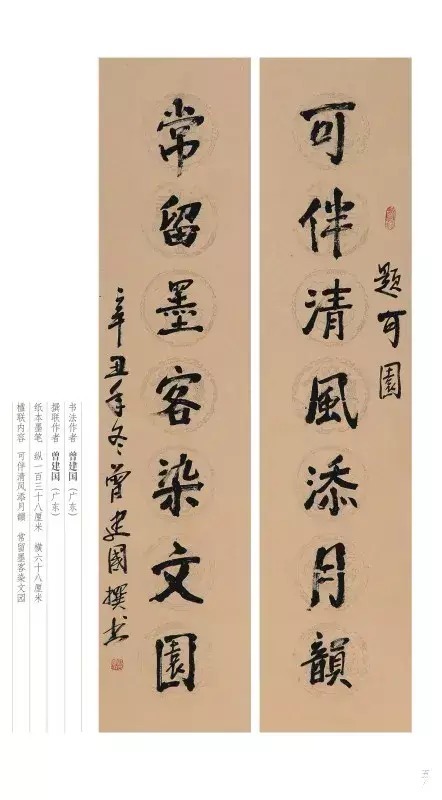 題可園
可伴清風添月韻
常留墨客染文園
辛丑年冬曾建國撰书
书法作者 曾建国（广东）
撰联作者 曾建国（广东）
纸本墨笔 纵一百三十八厘米 横六十八厘米
楹联内容 可伴清风添月韻 常留墨客染文园